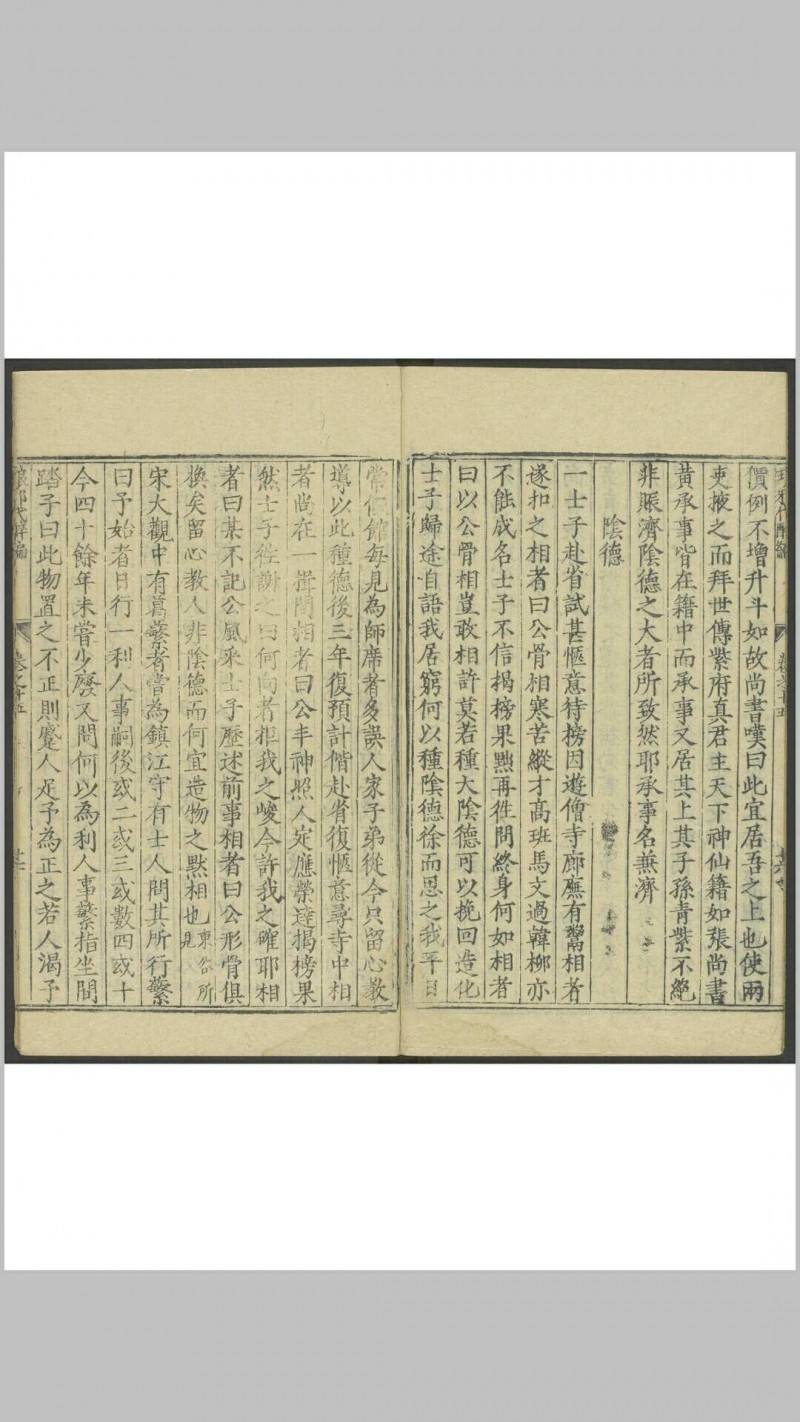 價例不增升斗如故尚書嘆曰此宜居吾之上也使兩
吏掖之而拜世傳紫府真君主天下神仙籍如張尚書
黃承事皆在籍中而承事又居其上其子孫青紫不絕
非賑濟陰德之大者所致然耶承事名兼濟
陰德
一士子赴省試甚愜意待榜因遊僧寺廊廡有鬻相者
遂扣之相者曰公骨相寒苦縱才高班馬文過韓柳亦
不能成名士子不信揭榜果黜再徃問終身何如相者
曰以公骨相豈敢相許莫若種大陰德可以挽回造化
士子歸途自語我居窮何以種陰德徐而思之我平日
嘗作館每見為師席者多誤人家子弟從今只留心教
導以此種德後三年復預計偕赴省復愜意尋寺中相
者尚在一揖間相者曰公丰神照人定應榮達揭榜果
然士子徃謝之曰何向者拒我之峻今許我之確耶相
者曰某不記公風采士子歷述前事相者曰公形骨俱
換矣留心教人非陰德而何宜造物之默相也東谷所見
宋大觀中有葛繁者嘗為鎮江守有士人問其所行繁
曰予始者日行一利人事嗣後或二或三或數四或十
今四十餘年未嘗少廢又問何以為利人事繁指坐間
踏子曰此物置之不正則蹙人足予為正之若人渴予